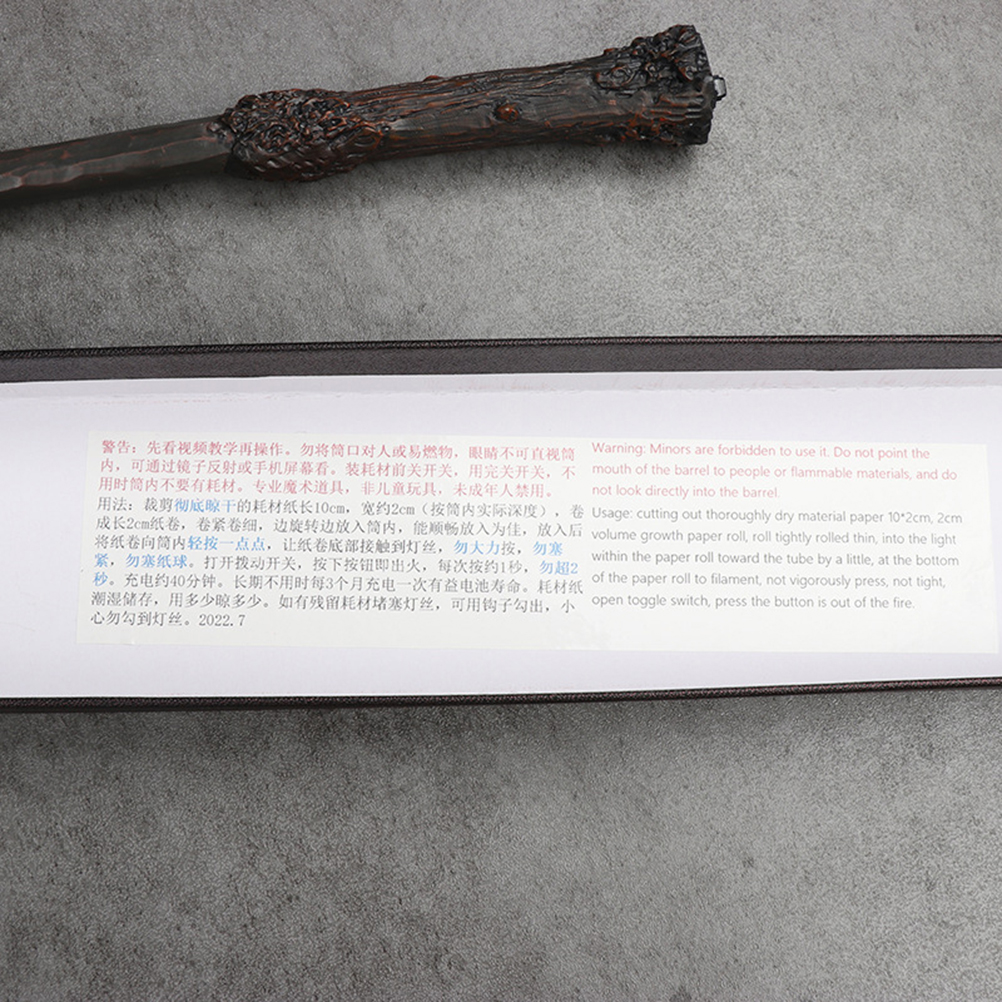 警告：先看视频教学再操作。勿将筒口对人或易燃物，眼睛不可直视筒
内，可通过镜子反射或手机屏幕看。装耗材前关开关，用完关开关，不
用时筒内不要有耗材。专业魔术道具，非儿童玩具，未成年人禁用。
用法：裁剪彻底晾干的耗材纸长10cm，宽约2cm（按筒内实际深度），卷
成长2cm纸卷，卷紧卷细，边旋转边放入筒内，能顺畅放入为佳，放入后
将纸卷向筒内轻按一点点，让纸卷底部接触到灯丝，勿大力按，勿塞
紧，勿塞纸球。打开拨动开关，按下按钮即出火，每次按约1秒，勿超2
秒。充电约40分钟。长期不用时每3个月充电一次有益电池寿命。耗材纸
潮湿储存，用多少晾多少。如有残留耗材堵塞灯丝，可用钩子勾出，小
心勿勾到灯丝。2022.7
Warning: Minors are forbidden to use it. Do not point the
mouth of the barrel to people or flammable materials, and do
not look directly into the barrel.
Usage: cutting out thoroughly dry material paper 10*2cm, 2cm
volume growth paper roll, roll tightly rolled thin, into the light
within the paper roll toward the tube by a little, at the bottom
of the paper roll to filament, not vigorously press, not tight,
open toggle switch, press the button is out of the fire.